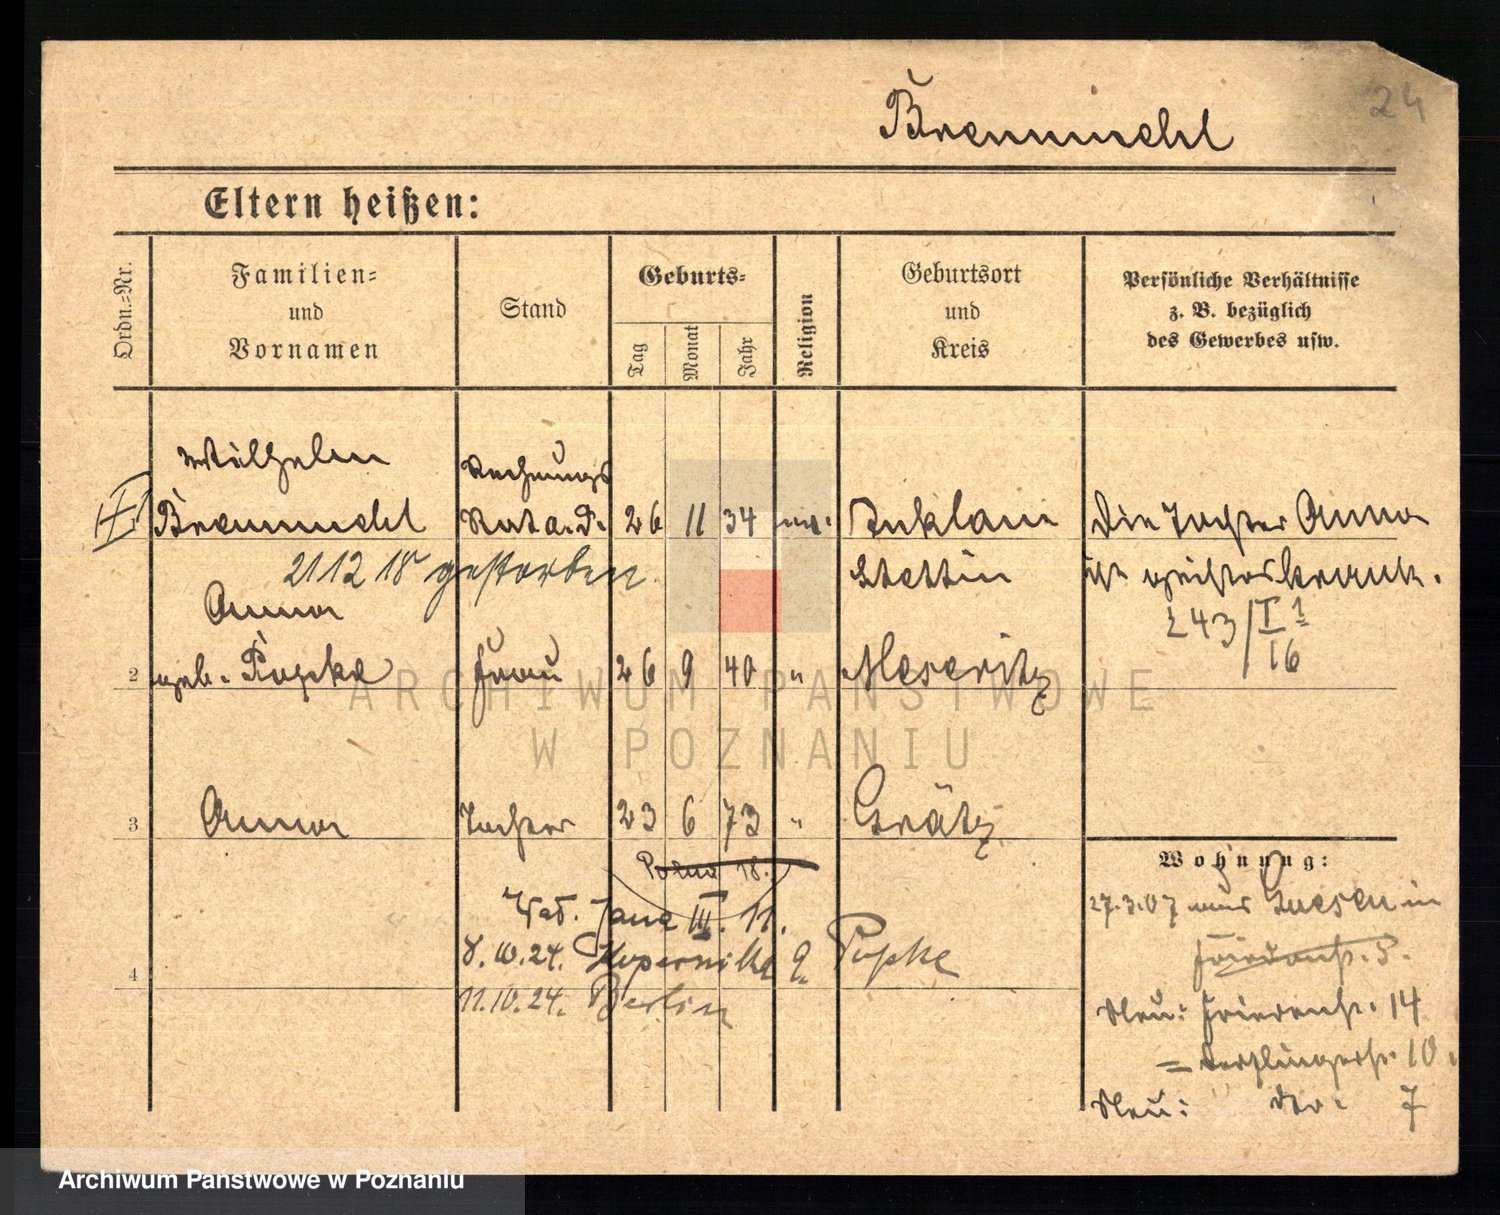 24
Bremmehl
Eltern heißen:
Ordn.=Nr.
Familien=
und
Vornamen
Stand
Geburts=
Tag
Monat
Jahr
Religion
Geburtsort
und
Kreis
Persönliche Verhältnisse
z. B. bezüglich
des Gewerbes usw.
Wilhelm
Rechnungs
Rat a. D. 26 11 34
Stettin
Die Tochter Anna
ist geisteskrank.
21 12 18 gestorben
243/I 1/16
Anna
2 geb. Papke Frau 26 9 40 " Meseritz
3 Anna Tochter 23 6 73 " Grätz
18.
III. 11.
8.10.24. Kopernika 9 Papke
4
11.10.24. Berlin
Wohnung:
27.3.07 aus Gnesen in
Friedenstr. 5.
Neu: Friedenstr. 14
= Derfflingerstr. 10.
Neu: dto. 7
ARCHIWUM PAŃSTWOWE
W POZNANIU
Archiwum Państwowe w Poznaniu